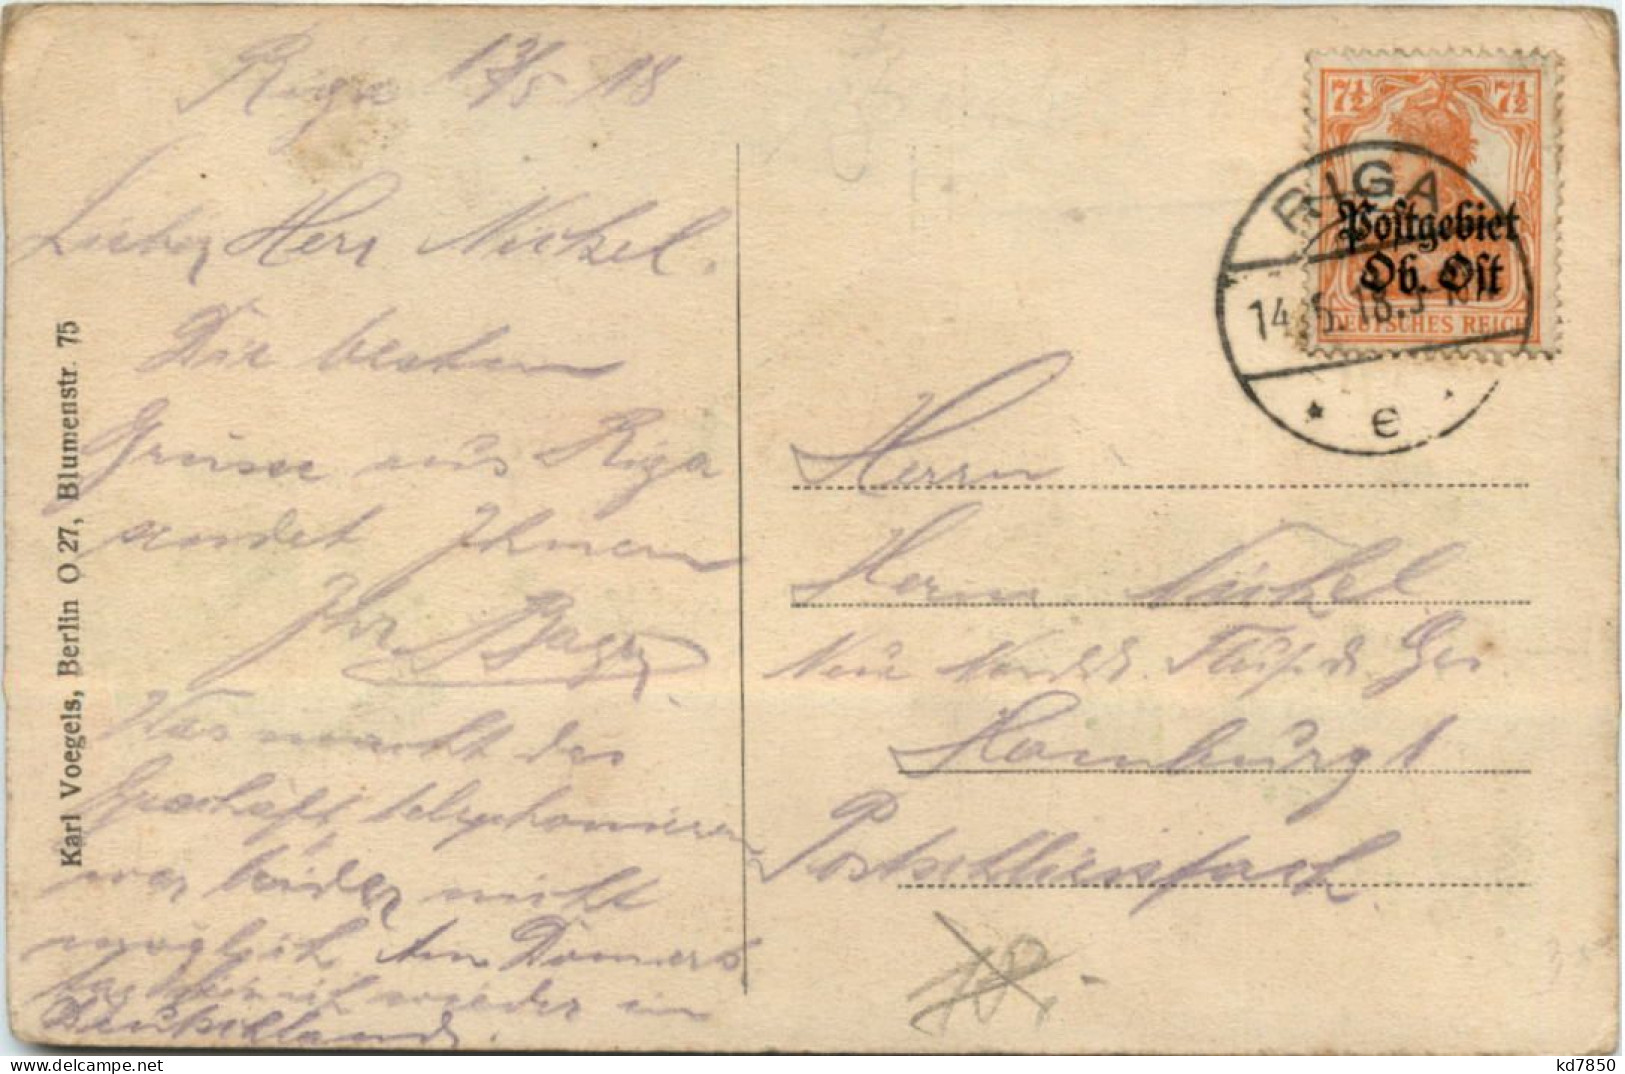 Riga 13/5 18
Lieber Herr Nickel.
Die besten
Grüsse aus Riga
sendet Ihnen
Ihr
Was macht das
Geschäft, telephonieren
war leider nicht
möglich. Am Donners
tag bin ich wieder in
Deutschland.
Karl Voegels, Berlin O 27, Blumenstr. 75
7½ 7½
Postgebiet
Ob. Ost
DEUTSCHES REICH
RIGA
14.5.18.
* e *
Herrn
Herm Nickel
Neue Nordd. Ges
Hamburg 1
Postschliessfach.
10.-
kd7850